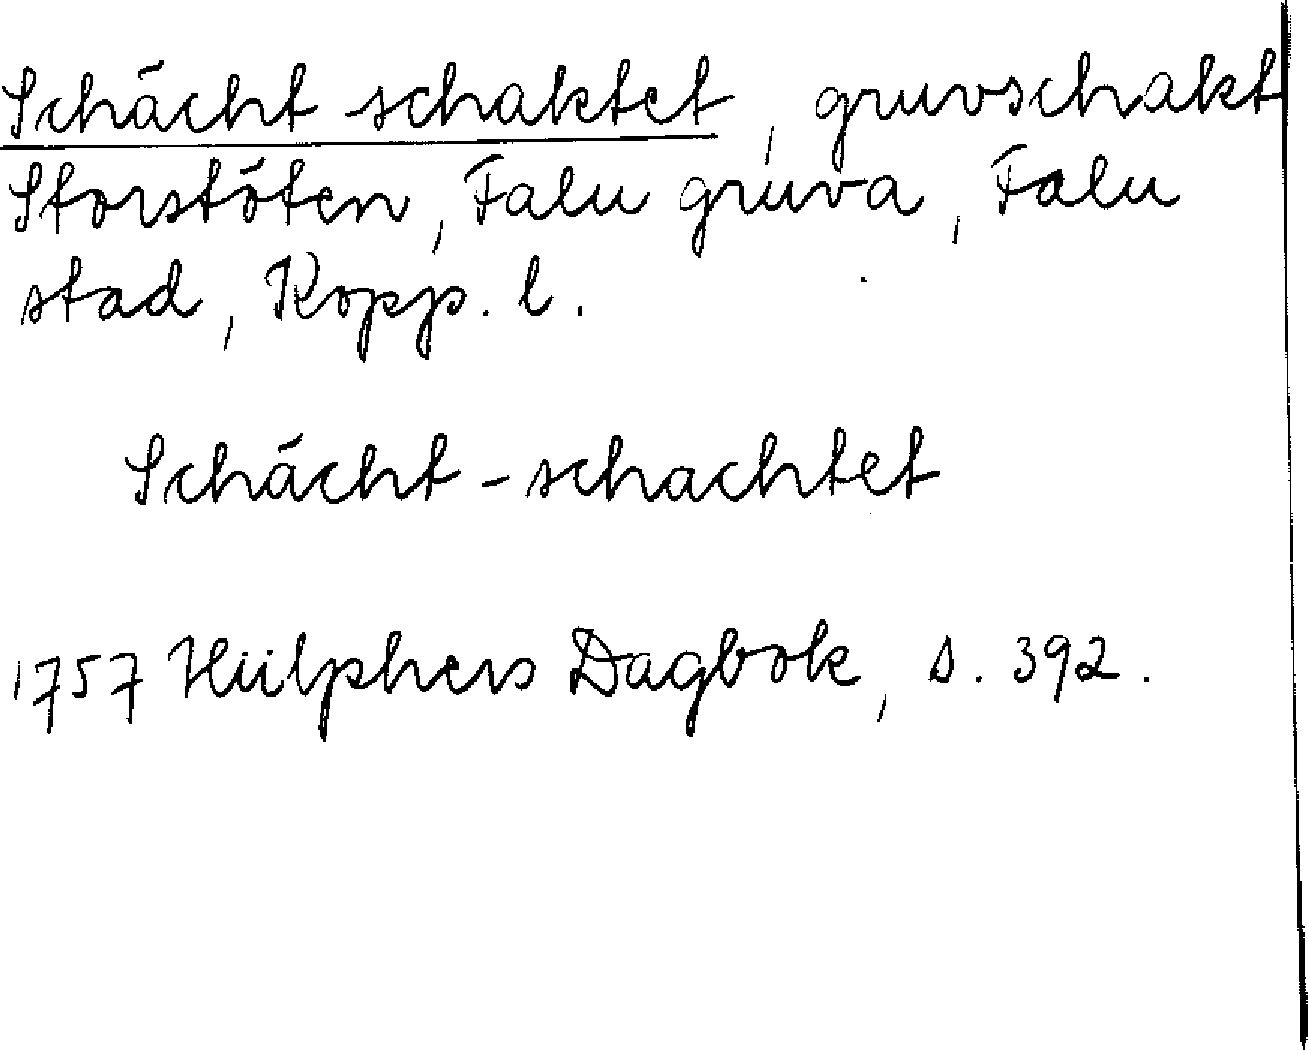 Schächt schaktet, gruvschakt
Storstöten, Falu gruva, Falu
stad, Kopp. l.
Schächt-schachtet
1757 Hülphers Dagbok, s. 392.